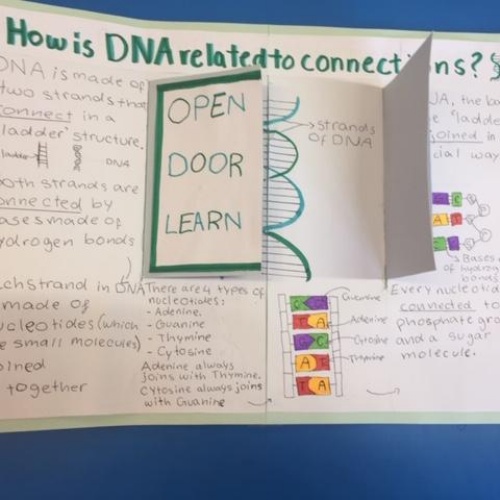 How is DNA related to connect ns?
DNA is made of
two strands that
connect in a
"ladder" structure.
ladder
DNA
both strands are
connected by
bases made of
hydrogen bonds
OPEN
DOOR
LEARN
strands
of DNA
DNA, the
"ladder
joined in
Bases
of
bonds
Each strand in DNA
made of
nucleotides (which
small molecules)
joined
together
There are 4 types of
nucleotides:
- Adenine.
- Guanine
- Thymine
- Cytosine
Adenine always
joins with Thymine.
Cytosine always joins
with Guanine
T A
G C
A T
T A
Guanine
Adenine
Cytosine
Thymine
Every nucleotid
connected to
phosphate gro
and a sugar
molecule.
C
A T
C